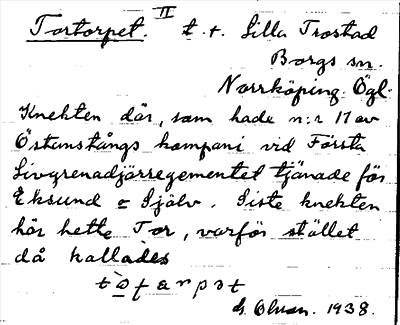 Tortorpet. II t. t. Lilla Trostad
Borgs sn.
Norrköping Ögl.
Knekten där, som hade n:r 17 av
Östanstångs kompani vid Första
Livgrenadjärregementet tjänade för
Eksund o Själv. Siste knekten
här hette Tor, varför stället
då kallades
G. Olson. 1938.